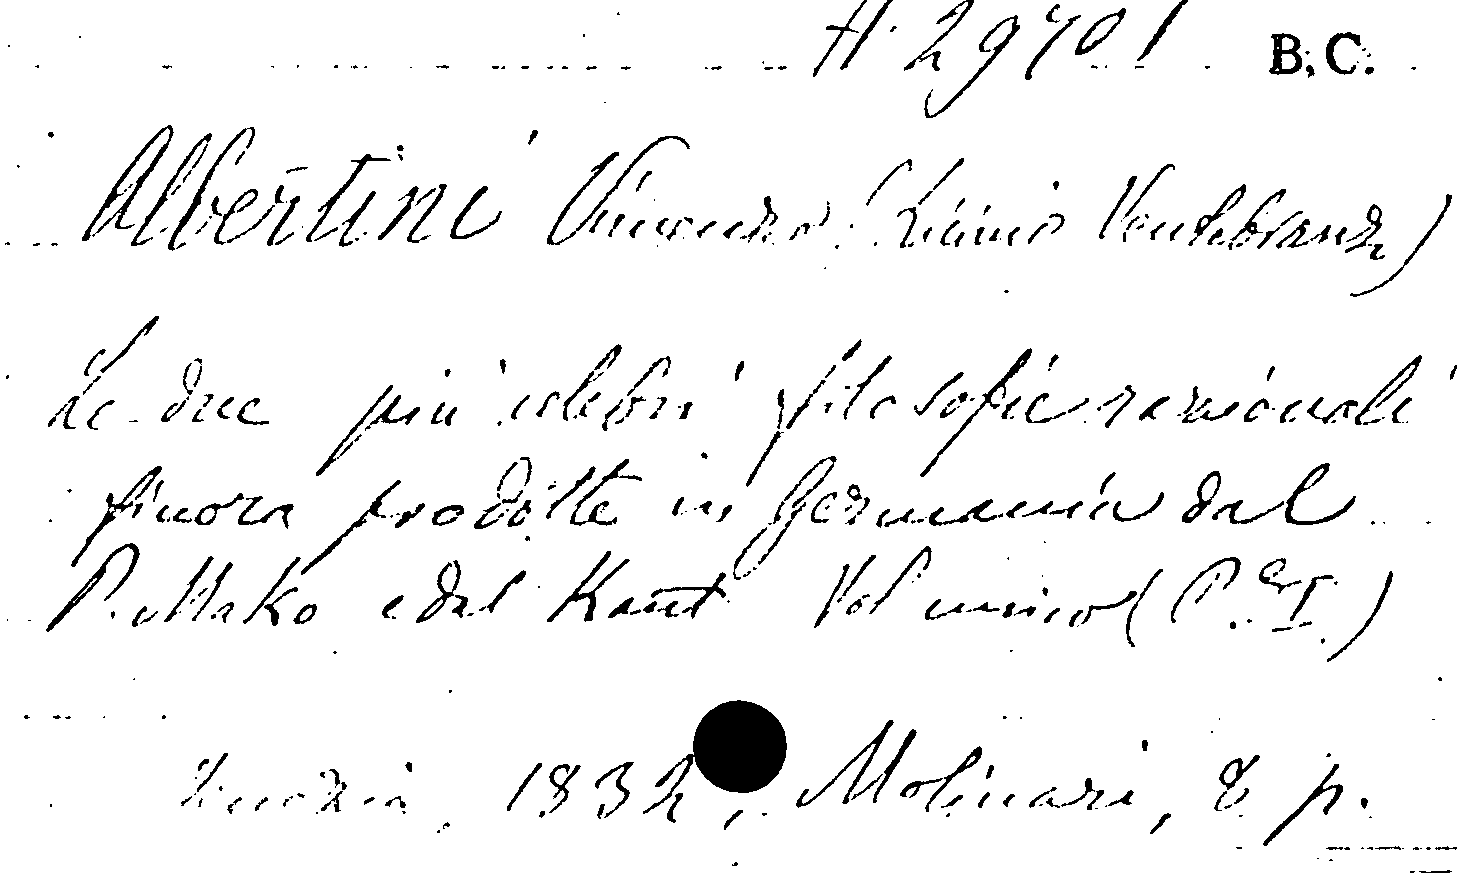 H 29701 B.C.
Albertini Vincenzo (Licinio Ventebranz)
Le due più celebri filosofie razionali
finora prodotte in Germania dal
P. Mako e dal Kant Vol unico (P. I.)
Venezia, 1832, Molinari, 8 p.